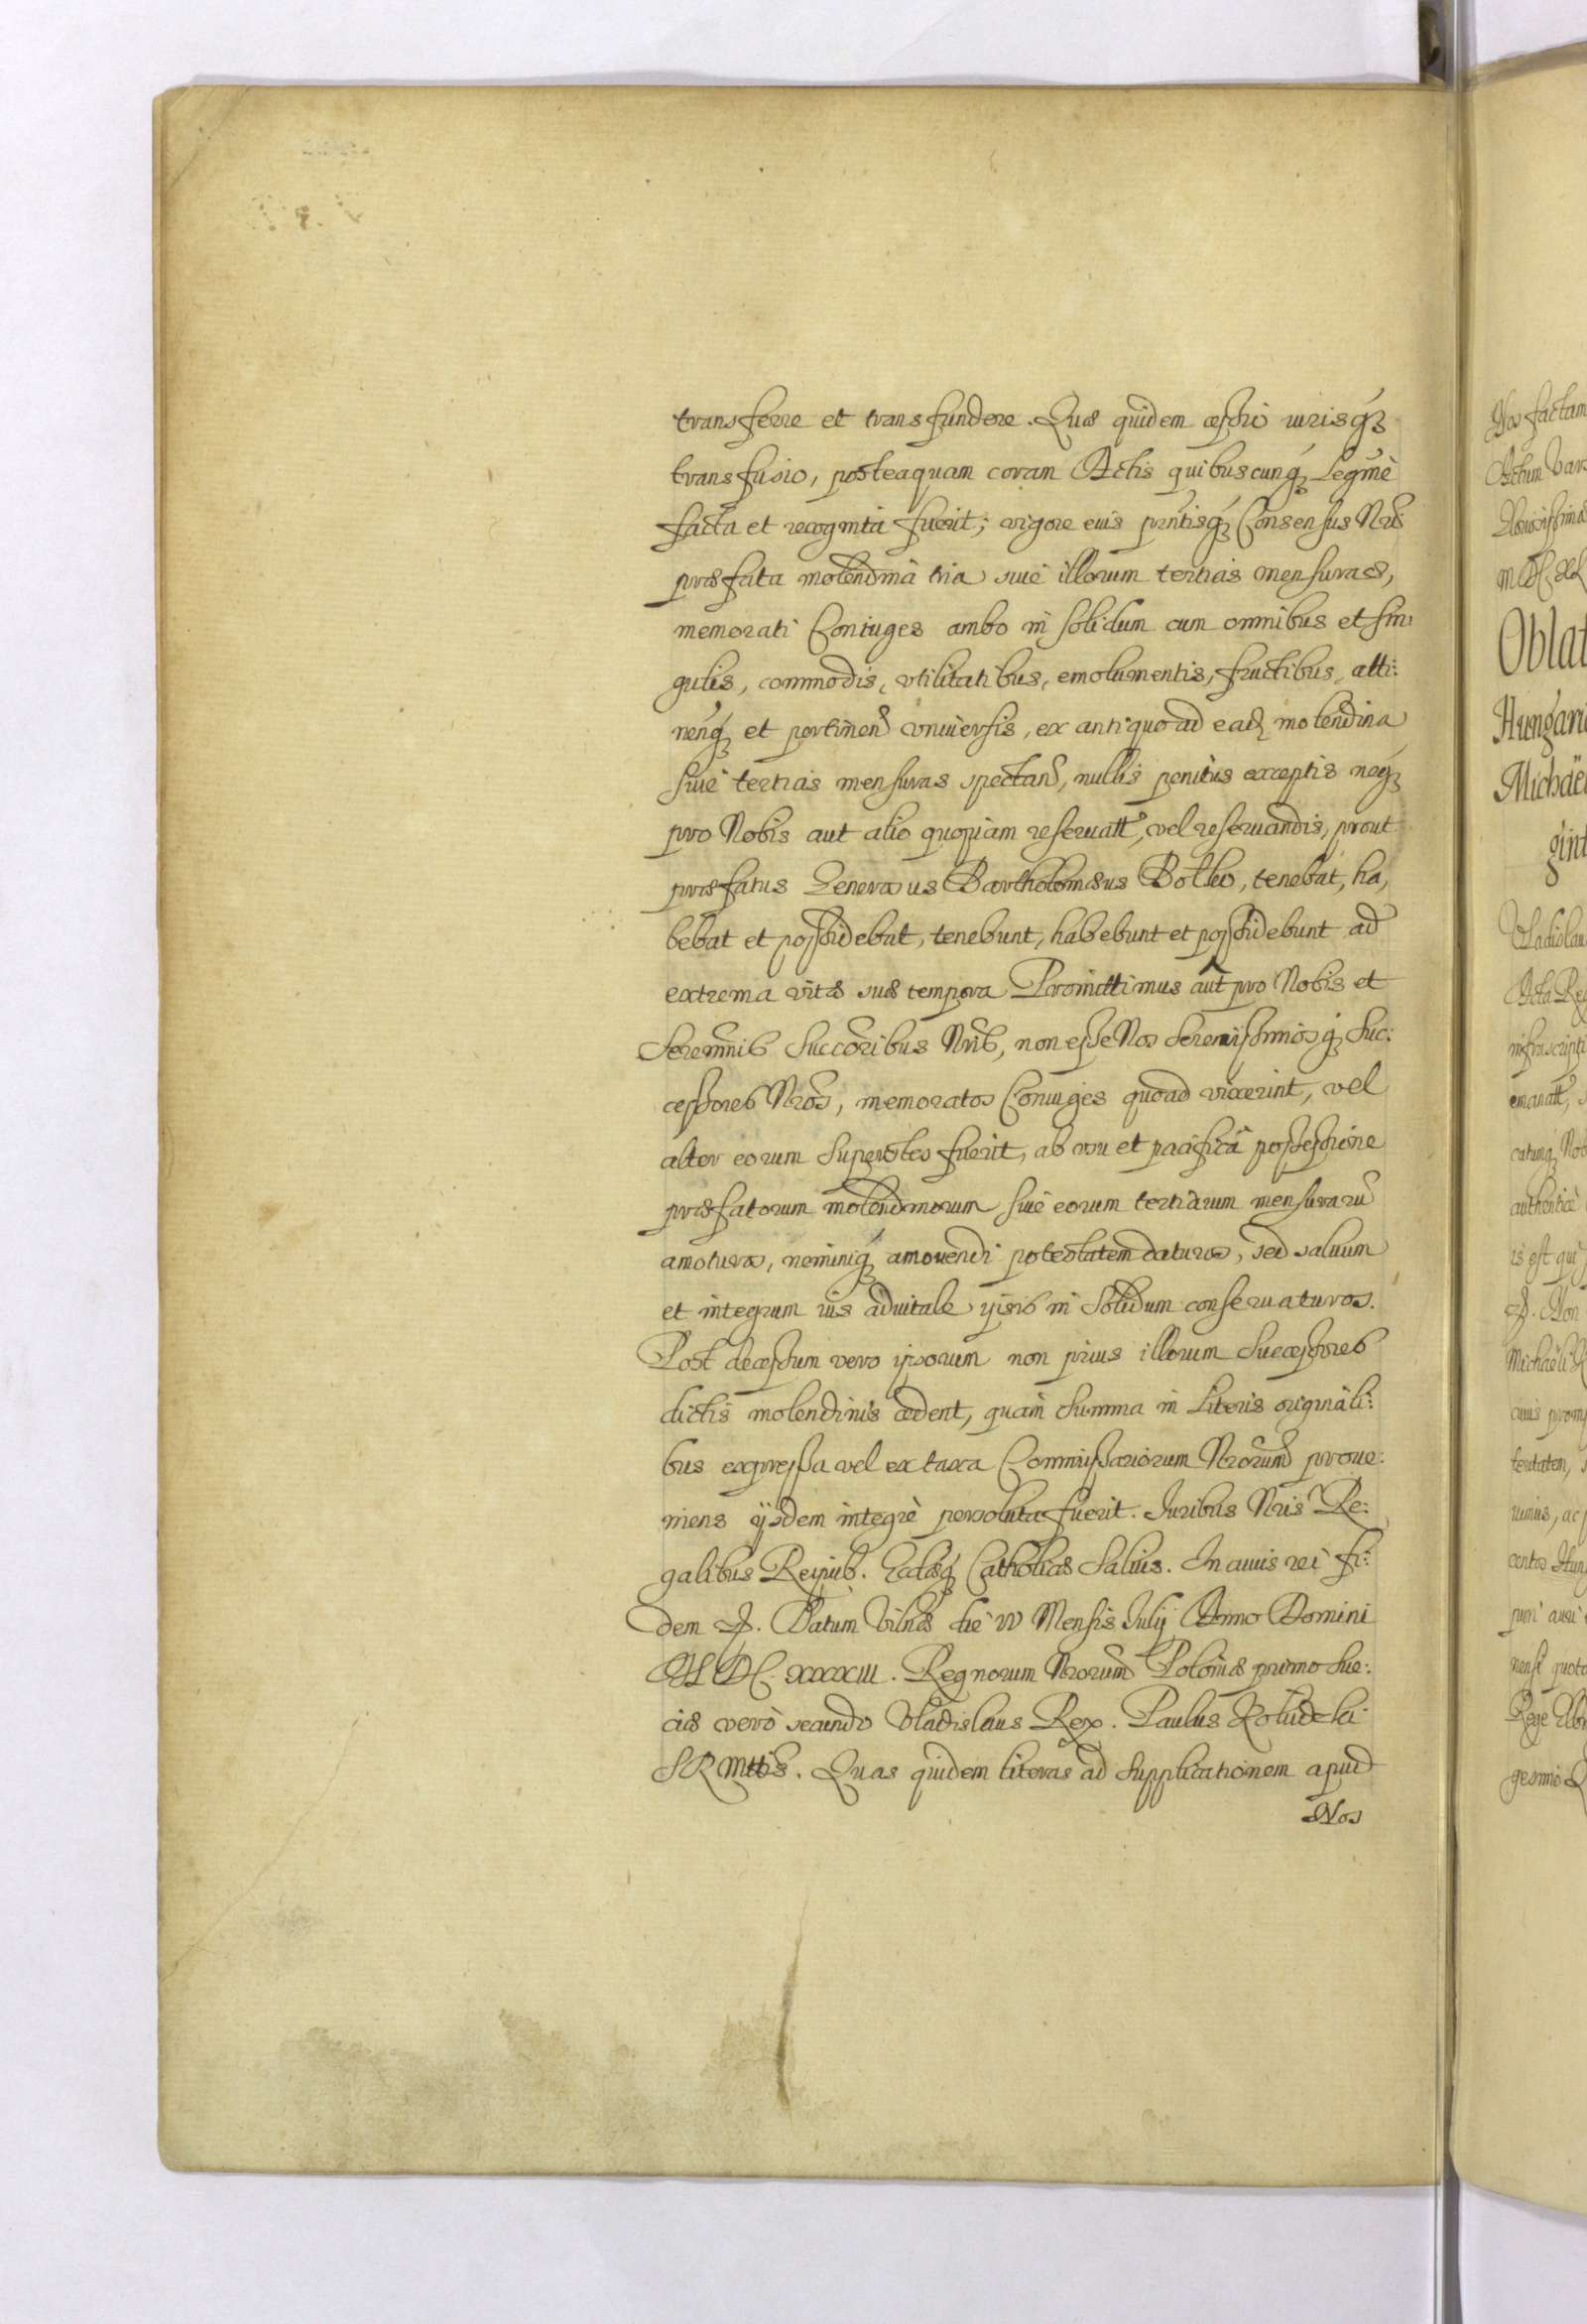 transferre et transfundere. Quæ quidem cessio iurisq́₃
transfusio, posteaquam coram Actis quibuscunq́₃ Legm̃è
facta et recognita fuerit; vigore eius pn̄tisq́₃ Consensus Nr̃i
præfata molendina tria siue illorum tertias mensuras,
memorati Coniuges ambo in solidum cum omnibus et sin,
gulis, commodis, vtilitatibus, emolumentis, fructibus, atti:
nenq́₃ et pertinen̄ vniuersis, ex antiquo ad ead₃ molendina
siue tertias mensuras spectan̄, nullis penitus exceptis neq́₃
pro Nobis aut alio quopiam reseruatt̄, vel reseruandis, prout
præfatus Generosus Bartholomæus Botho, tenebat, ha,
bebat et possidebat, tenebunt, habebunt et possidebunt ad
extrema vitæ suæ tempora Promittimus aūt pro Nobis et
Seren̄nis Succōribus Nr̄is, non esse Nos Serenissimosq́₃ Suc:
cessores Nr̄os, memoratos Coniuges quoad vixerint, vel
alter eorum Superstes fuerit, ab vsu et pacificâ possessione
præfatorum molendinorum siue eorum tertiarum mensurarū
amoturos, neminiq́₃ amouendi potestatem daturos, sed saluum
et integrum ius aduitale ipsis in Solidum conseruaturos.
Post decessum vero ipsorum non prius illorum Successores
dictis molendinis cedent, quam Summa in Literis originali:
bus expressa vel ex taxa Commissariorum Nr̄orum proue:
niens ijsdem integrè persoluta fuerit. Iuribus Nr̄is Re:
galibus Reipub. Ecclæq́₃ Catholicæ Saluis. In cuius rei fi:
dem &. Datum Vilnæ die IV Mensis Iulij Anno Domini
M DC. XXXXIII. Regnorum Nr̄orum Poloniæ primo Sue:
ciæ verò secundo Vladislaus Rex. Paulus
S R Mttis. Quas quidem literas ad Supplicationem apud
Nos
Nos factam
Actum Vars
M DC
Oblat
Hungari
Michaë
gint
Vladislau
Acta Reg
infrascripti
emanatt,
Nos
authenticè
is est qui
Michaëli
cuius
centos Hun
nensi quoto
Rege
gesimo